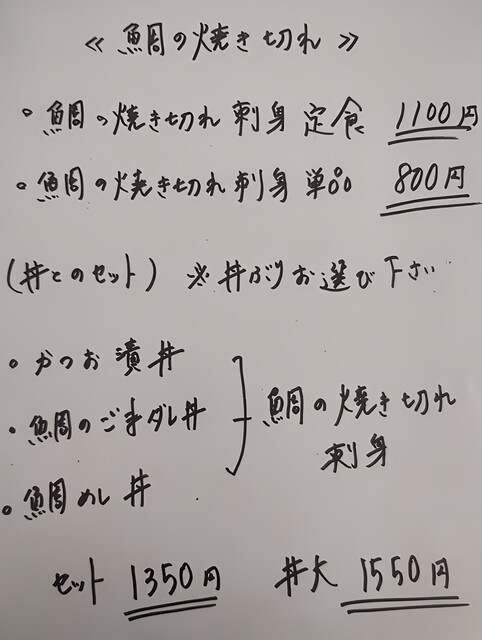 ≪ 鯛の焼き切れ ≫
・鯛の焼き切れ刺身 定食 1100円
・鯛の焼き切れ刺身 単品 800円
(丼とのセット) ※丼ぶりお選び下さい
・かつお漬丼
・鯛のごまダレ丼
・鯛めし丼
鯛の焼き切れ
刺身
セット 1350円 丼大 1550円